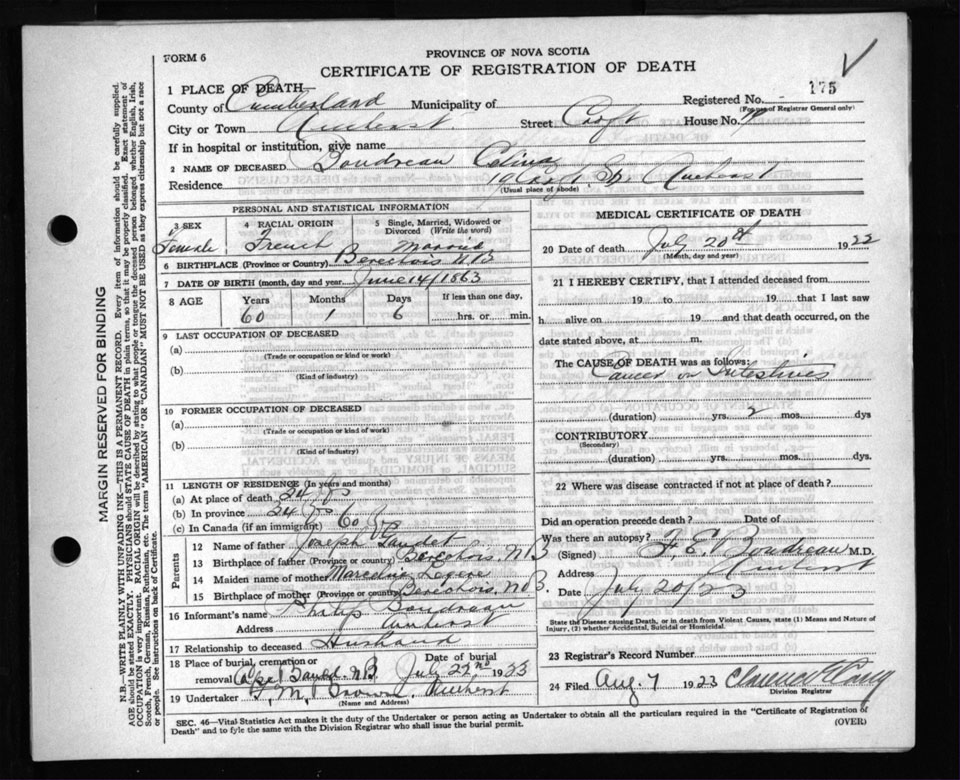 FORM 6
PROVINCE OF NOVA SCOTIA
CERTIFICATE OF REGISTRATION OF DEATH
1 PLACE OF DEATH—
175
County of Cumberland Municipality of Registered No.
(For use of Registrar General only)
City or Town Amherst. Street Croft House No. 19
If in hospital or institution, give name
2 NAME OF DECEASED Boudreau Celina
Residence 19 Croft St, Amherst
(Usual place of abode)
PERSONAL AND STATISTICAL INFORMATION
3 SEX 4 RACIAL ORIGIN 5 Single, Married, Widowed or Divorced (Write the word)
Female French Married
6 BIRTHPLACE (Province or Country) Berechois N.B
7 DATE OF BIRTH (month, day and year) June 14/1863
8 AGE Years Months Days If less than one day,
60 1 6 hrs. or min.
9 LAST OCCUPATION OF DECEASED
(a)
(Trade or occupation or kind of work)
(b)
(Kind of industry)
10 FORMER OCCUPATION OF DECEASED
(a)
(Trade or occupation or kind of work)
(b)
(Kind of industry)
11 LENGTH OF RESIDENCE (In years and months)
(a) At place of death 24 yrs
(b) In province 24 yrs
(c) In Canada (if an immigrant) 60 yrs
Parents
12 Name of father Joseph
13 Birthplace of father (Province or country) Berechois, N.B
14 Maiden name of mother
15 Birthplace of mother (Province or country) Berechois, N.B.
16 Informant's name Philip Boudreau
Address Amherst
17 Relationship to deceased Husband
18 Place of burial, cremation or removal N.B. Date of burial July 22nd 1923
19 Undertaker Brown, Amherst
(Name and Address)
MEDICAL CERTIFICATE OF DEATH
20 Date of death July 20th 1922
(Month, day and year)
21 I HEREBY CERTIFY, that I attended deceased from
19 to 19 that I last saw
h alive on 19 and that death occurred, on the
date stated above, at m.
The CAUSE OF DEATH was as follows:
Cancer or Intestines
(duration) yrs. 2 mos. dys
CONTRIBUTORY
(Secondary)
(duration) yrs. mos. dys.
22 Where was disease contracted if not at place of death?
Did an operation precede death? Date of
Was there an autopsy?
(Signed) F. E. Boudreau M.D.
Address Amherst
Date July 20/23
State the Disease causing Death, or in death from Violent Causes, state (1) Means and Nature of
Injury, (2) whether Accidental, Suicidal or Homicidal.
23 Registrar's Record Number
24 Filed Aug. 7 1923 Clarence
Division Registrar
SEC. 46—Vital Statistics Act makes it the duty of the Undertaker or person acting as Undertaker to obtain all the particulars required in the "Certificate of Registration of
Death" and to fyle the same with the Division Registrar who shall issue the burial permit. (OVER)
MARGIN RESERVED FOR BINDING
N.B.—WRITE PLAINLY WITH UNFADING INK—THIS IS A PERMANENT RECORD. Every item of information should be carefully supplied.
AGE should be stated EXACTLY. PHYSICIANS should STATE CAUSE OF DEATH in plain terms, so that it may be properly classified. Exact statement of
OCCUPATION is very important. RACIAL ORIGIN will be described by stating to what people or tongue the deceased person belonged whether English, Irish,
Scotch, French, German, Russian, Ruthenian, etc. The terms "AMERICAN" OR "CANADIAN" MUST NOT BE USED as they express citizenship but not a race
or people. See instructions on back of Certificate.